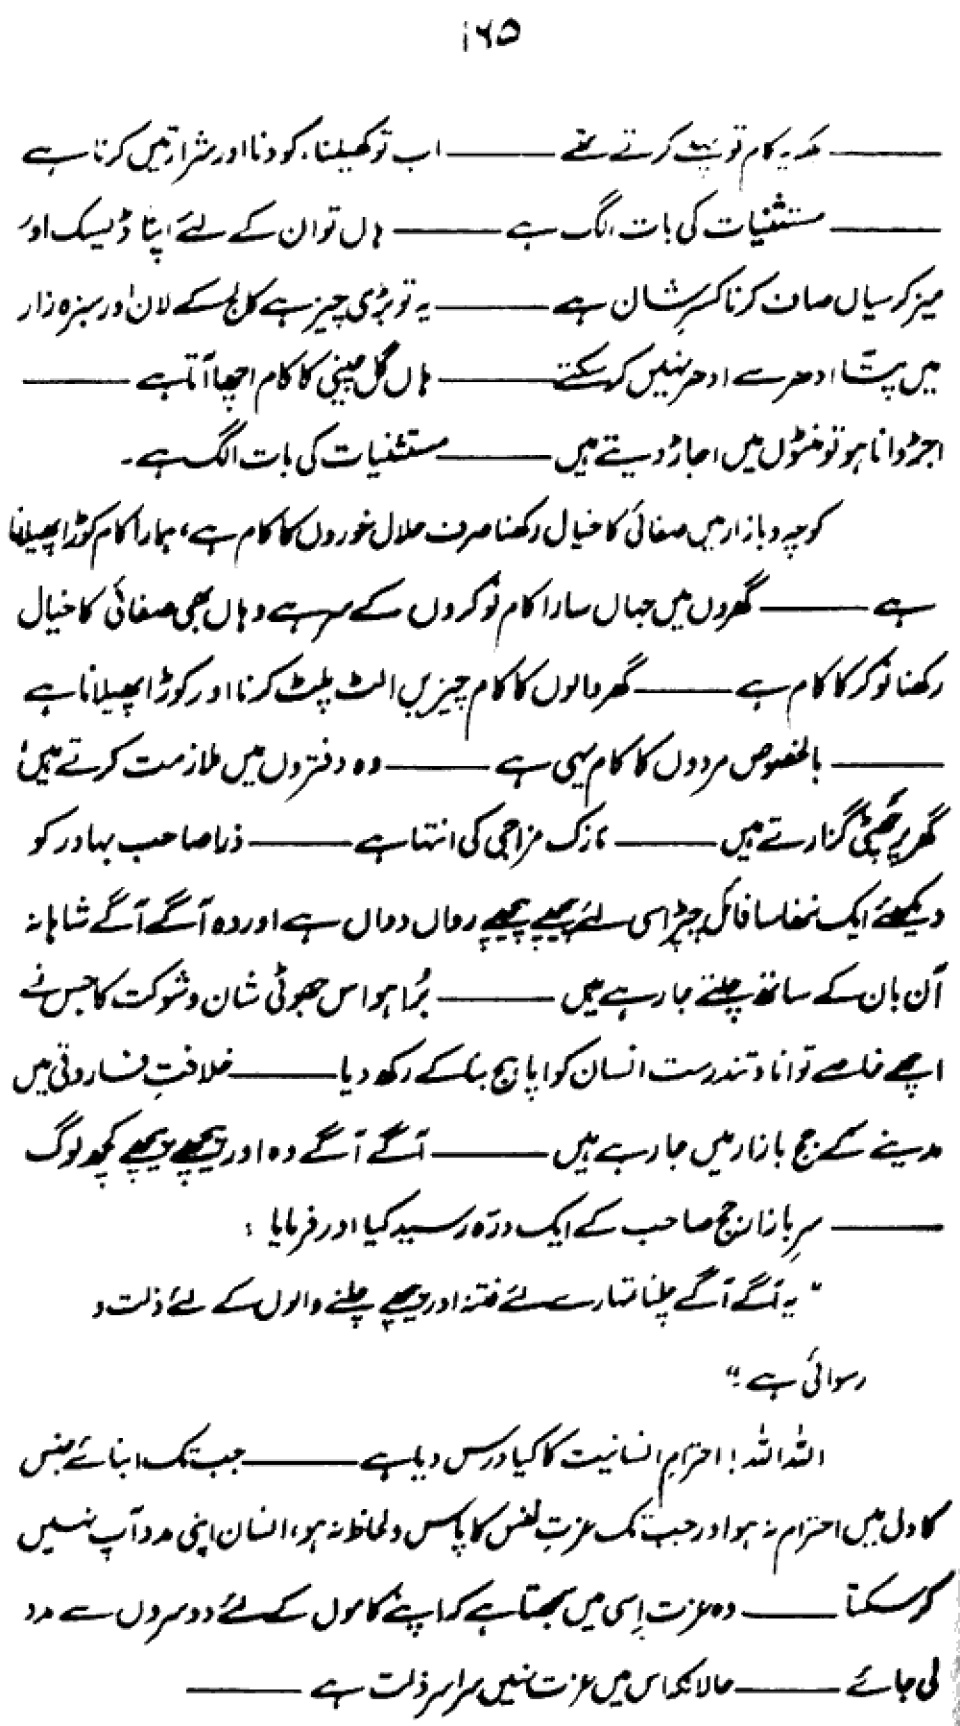 ۱۶۵
——— کہ یہ کام تو بہت کرتے تھے ——— اب تو کھیلنا، کودنا اور شرارتیں کرنا ہے
——— مستثنیات کی بات الگ ہے ——— ہاں تو ان کے لئے اپنا ڈیسک اور
میز کرسیاں صاف کرنا کسرِ شان ہے ——— یہ تو بڑی چیز ہے کالج کے لان اور سبزہ زار
میں پتّا ادھر سے ادھر نہیں کر سکتے ——— ہاں گل چینی کا کام اچھا آتا ہے ———
اجڑوانا ہو تو منٹوں میں اجاڑ دیتے ہیں ——— مستثنیات کی بات الگ ہے۔
کوچہ و بازار میں صفائی کا خیال رکھنا صرف حلال خوروں کا کام ہے، ہمارا کام کوڑا پھیلانا
ہے ——— گھروں میں جہاں سارا کام نوکروں کے سر ہے وہاں بھی صفائی کا خیال
رکھنا نوکر کا کام ہے ——— گھر والوں کا کام چیزیں الٹ پلٹ کرنا اور کوڑا پھیلانا ہے
——— بالخصوص مردوں کا کام یہی ہے ——— وہ دفتروں میں ملازمت کرتے ہیں،
گھر پر چھٹی گزارتے ہیں ——— نازک مزاجی کی انتہا ہے ——— ذرا صاحب بہادر کو
دیکھئے ایک ننھا سا فائل چپڑاسی لئے پیچھے پیچھے رواں دواں ہے اور وہ آگے آگے شاہانہ
آن بان کے ساتھ چلتے جا رہے ہیں ——— بُرا ہو اس جھوٹی شان و شوکت کا جس نے
اچھے خاصے توانا و تندرست انسان کو اپاہج بنا کے رکھ دیا ——— خلافتِ فاروقی میں
مدینے کے جج بازار میں جا رہے ہیں ——— آگے آگے وہ اور پیچھے پیچھے کچھ لوگ
——— سرِ بازار جج صاحب کے ایک درّہ رسید کیا اور فرمایا :
”یہ آگے آگے چلنا تمہارے لئے فتنہ اور پیچھے چلنے والوں کے لئے ذلت و
رسوائی ہے۔“
اللہ اللہ! احترامِ انسانیت کا کیا درس دیا ہے ——— جب تک ابنائے جنس
کا دل میں احترام نہ ہو اور جب تک عزتِ نفس کا پاس و لحاظ نہ ہو، انسان اپنی مدد آپ نہیں
کر سکتا ——— وہ عزت اِسی میں سمجھتا ہے کہ اپنے کاموں کے لئے دوسروں سے مدد
لی جائے ——— حالانکہ اس میں عزت نہیں سراسر ذلت ہے ———